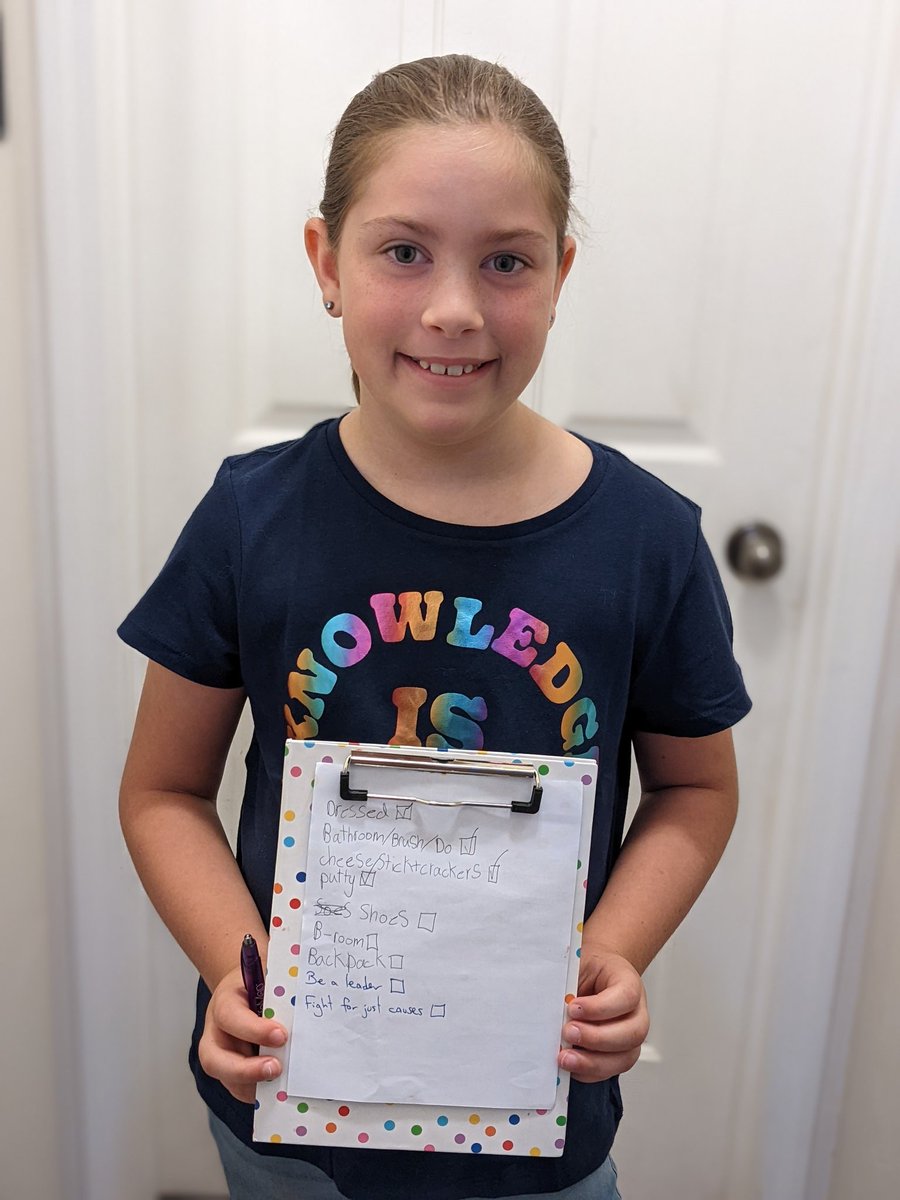 KNOWLEDG
IS
Dressed
Bathroom/Brush/Do
cheese/stick+crackers
putty
Shoes
B-room
Backpack
Be a leader
Fight for just causes